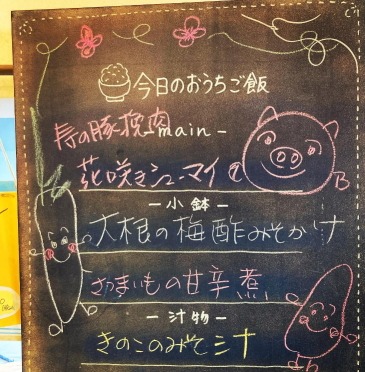 今日のおうちご飯
寿の豚挽肉 -main-
花咲きシューマイ
-小鉢-
大根の梅酢みそかけ
さつまいもの甘辛煮
-汁物-
きのこのみそ汁